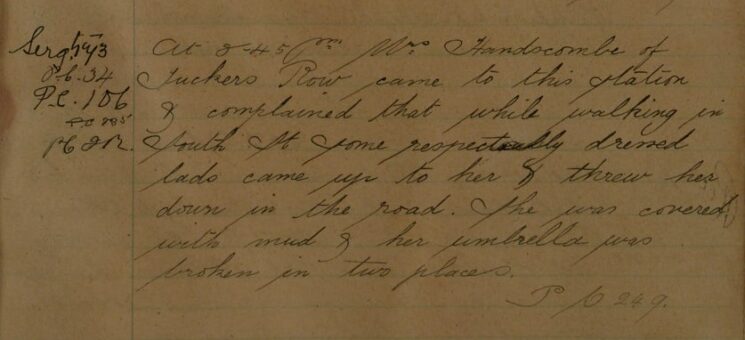 Sergt 43
P.C. 34
P.C. 106
PC 285
PC 2R.
At 8-45 pm Mrs Handscombe of
Tuckers Row came to this station
& complained that while walking in
South St some respectably dressed
lads came up to her & threw her
down in the road. She was covered
with mud & her umbrella was
broken in two places.
P C 249.